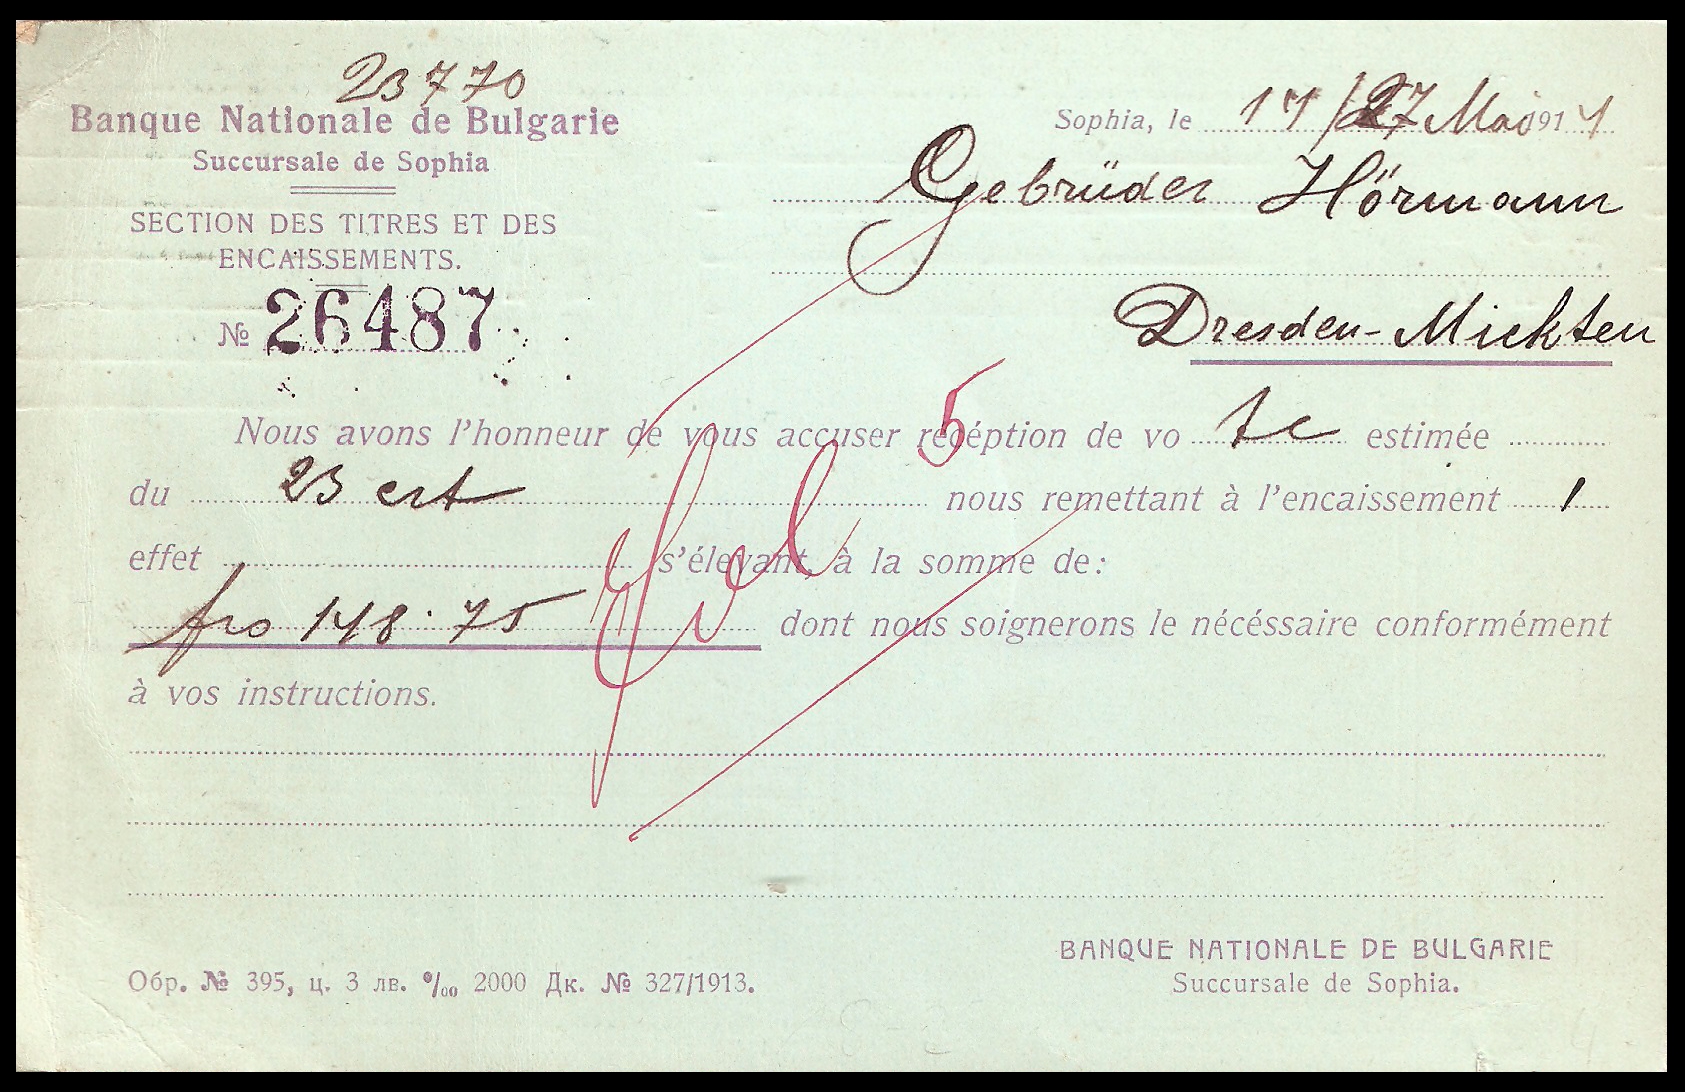 23770
Banque Nationale de Bulgarie
Succursale de Sophia
SECTION DES TITRES ET DES
ENCAISSEMENTS.
№ 26487
Sophia, le 14/27 Mai 914
Gebrüder Hörmann
Dresden-Mickten
Nous avons l'honneur de vous accuser recéption de vo te estimée
du 23 crt nous remettant à l'encaissement 1
effet s'élevant, à la somme de:
frs 148.75 dont nous soignerons le nécéssaire conformément
à vos instructions.
5
BANQUE NATIONALE DE BULGARIE
Succursale de Sophia.
Обр. № 395, ц. 3 лв. %₀₀ 2000 Дк. № 327/1913.